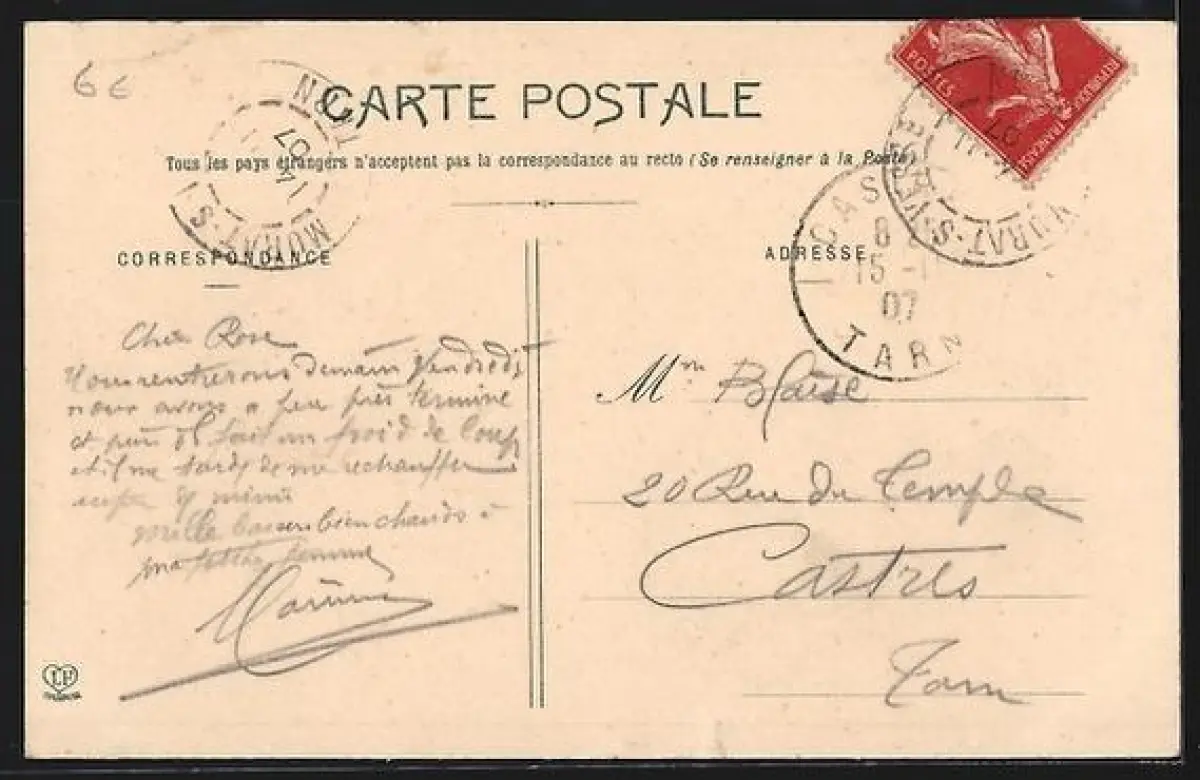 6 €
CARTE POSTALE
Tous les pays étrangers n'acceptent pas la correspondance au recto (Se renseigner à la Poste)
POSTES
FRANÇAISE
MURAT-S-VÈBRE
07
MURAT-S-
07
CAS
8
15 -1
07
TARN
CORRESPONDANCE
ADRESSE
Chère Rose
Nous rentrerons demain Vendredi
nous avons a peu près terminé
et puis il fait un froid de loup
et il me tarde de me rechauffer
mille baisers bien chauds à
ma petite femme
Mme Blaise
20 Rue du Temple
Castres
Tarn